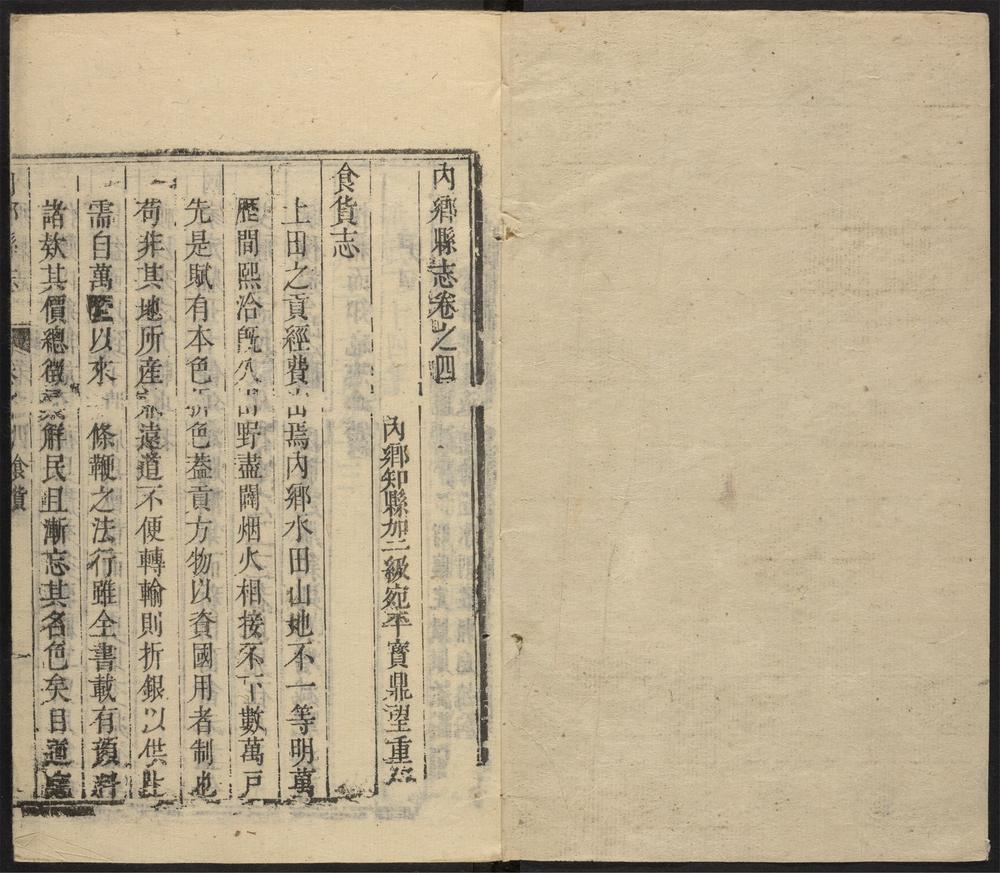 內鄉縣志卷之四
內鄉知縣加二級宛平寶鼎望重
食貨志
土田之貢經費出焉內鄉水田山地不一等明萬
歷間熙洽旣久田野盡闢烟火相接不下數萬戸
先是賦有本色折色葢貢方物以資國用者制也
苟非其地所産遠道不便轉輸則折銀以供
需自萬歷以來 條鞭之法行雖全書載有預料
諸欵其價總徵解民且漸忘其名色矣目
卷之四 食貨